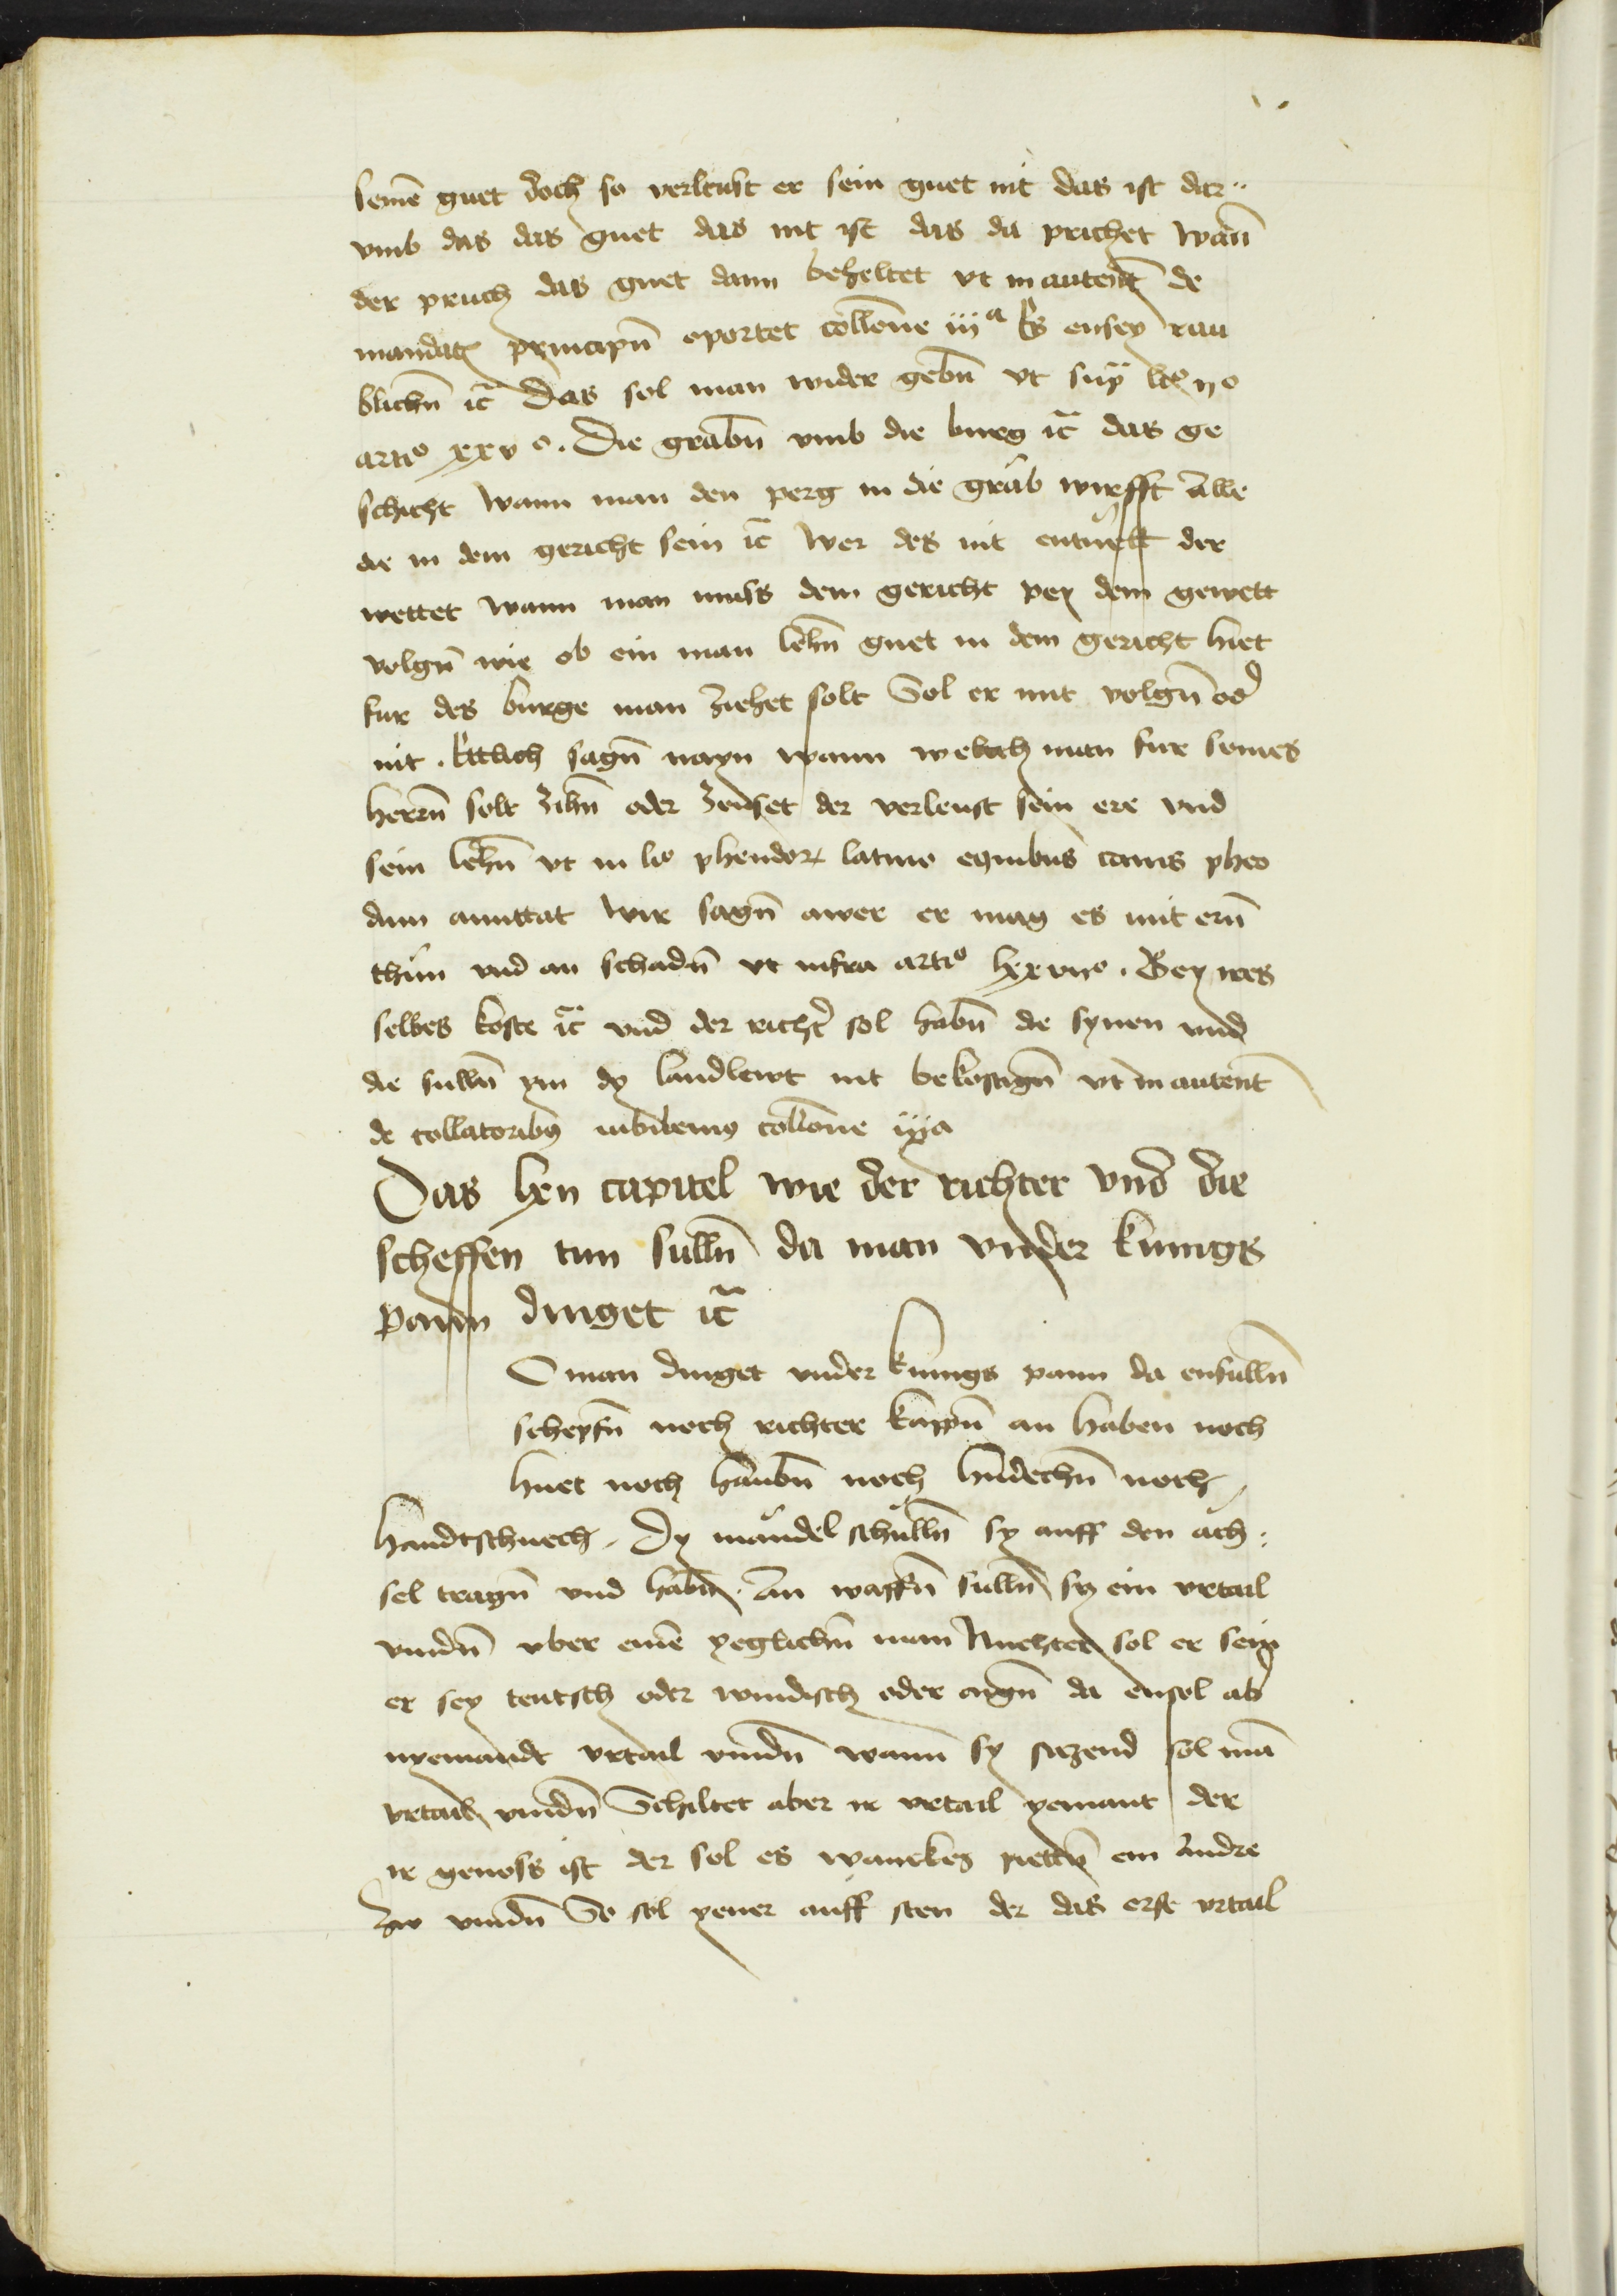 seinē guet doch so verleust er sein guet nit das ist dar
vmb das das guet das nit ist das da prichet wān
der pruch das guet dann beheltet vt in autent de
mandatꝭ principū oportet collōne iiiᵃ Es ensey rau
blichn̄ ꝛc̄ Das sol man wider gebn̄ vt sup̄ li̊ ijo
arti̊ xxvo. Die grabn̄ vmb die burg ꝛc̄ das ge
schicht wann man den perg in die grůb wirfft Alle
die in dem gericht sein ꝛc̄ Wer des nit entuett der
wettet wann man muss dem gericht pey dem gewett
volgn̄ wie ob ein man lehn̄ guet in dem gericht hiet
fur des burge man ziehet solt Sol er mit volgn̄ od̾
nit. Ettlich sagn̄ nayn wann welich man fur seines
herrn̄ solt zihn̄ oder zeuset der verleust sein ere vnd
sein lehn̄ vt in li̊ pheudoꝝ latino equibus cauis pheo
dum amittat Wir sagn̄ awer er mag es mit ern̄
thůn vnd an schadn̄ vt infra arti̊ lxxviio. Bey wes
selbes koste ꝛc̄ vnd der richt̾ sol habn̄ die synen vnd
die sulln̄ ym dy landlewt nit bekostign̄ vt in autent
de collatoribꝰ iubemꝰ collōne iiia
Das lxii capitel wie der richter vnd die
scheffen tun sulln̄ da man vnder kunigs
pann dinget ꝛc̄
O man dinget vnder kunigs pann da ensulln̄
schepfn̄ noch richter kappn̄ an haben noch
huet noch haubn̄ noch hudechn̄ noch
handtschuech. Dy mandel schulln̄ sy auff den ach
sel tragn̄ vnd habn̄. An waffn̄ sulln̄ sy ein vrtail
vindn̄ vber einē yeglichn̄ man Nuchter sol er sein
er sey teutsch oder windisch oder aign̄ da ensol ab̾
nyemandt vrtail vindn̄ wann sy sizend sol mā
vrtail vindn̄ Schiltet aber ir vrtail yemant der
ir genoss ist der sol es ein andre
zw vindn̄ So sol yener auff sten der das erst vrtail